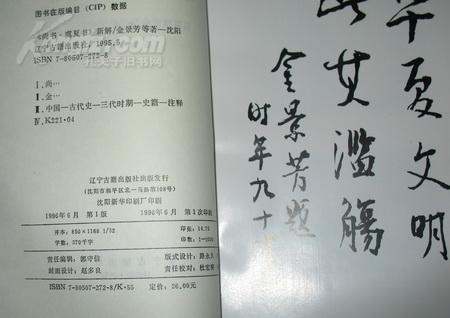 图书在版编目 (CIP) 数据
《尚书·虞夏书》新解/金景芳等著—沈阳
辽宁古籍出版社 1995.5
ISBN 7-80507-272-8
Ⅰ.尚…
Ⅱ.金…
Ⅲ.中国—古代史—三代时期—史籍—注释
Ⅳ.K221.04
辽宁古籍出版社出版发行
(沈阳市和平区北一马路第108号)
沈阳新华印刷厂印刷
1996年6月 第1版 1996年6月 第1次印刷
开本:850×1168 1/32 印张:14.75
字数:370千字 印数:1-2000
责任编辑:郭守信 版式设计:
封面设计:赵多良 责任校对:杜宏
ISBN 7-80507-272-8/K·55 定价:26.00元
华夏文明
此其滥觞
金景芳题
时年九十
孔夫子旧书网